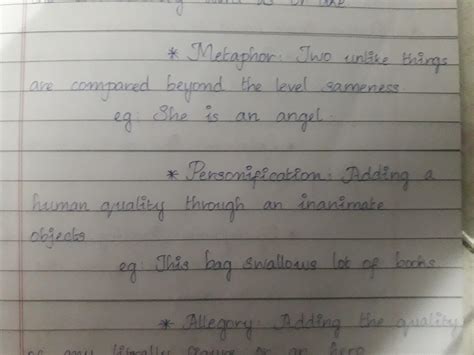 as or like
* Metaphor: Two unlike things
are compared beyond the level sameness.
eg: She is an angel.
* Personification: Adding a
human quality through an inanimate
objects
eg: This bag swallows lot of books.
* Allegory: Adding the quality
of any literally figure or an hero